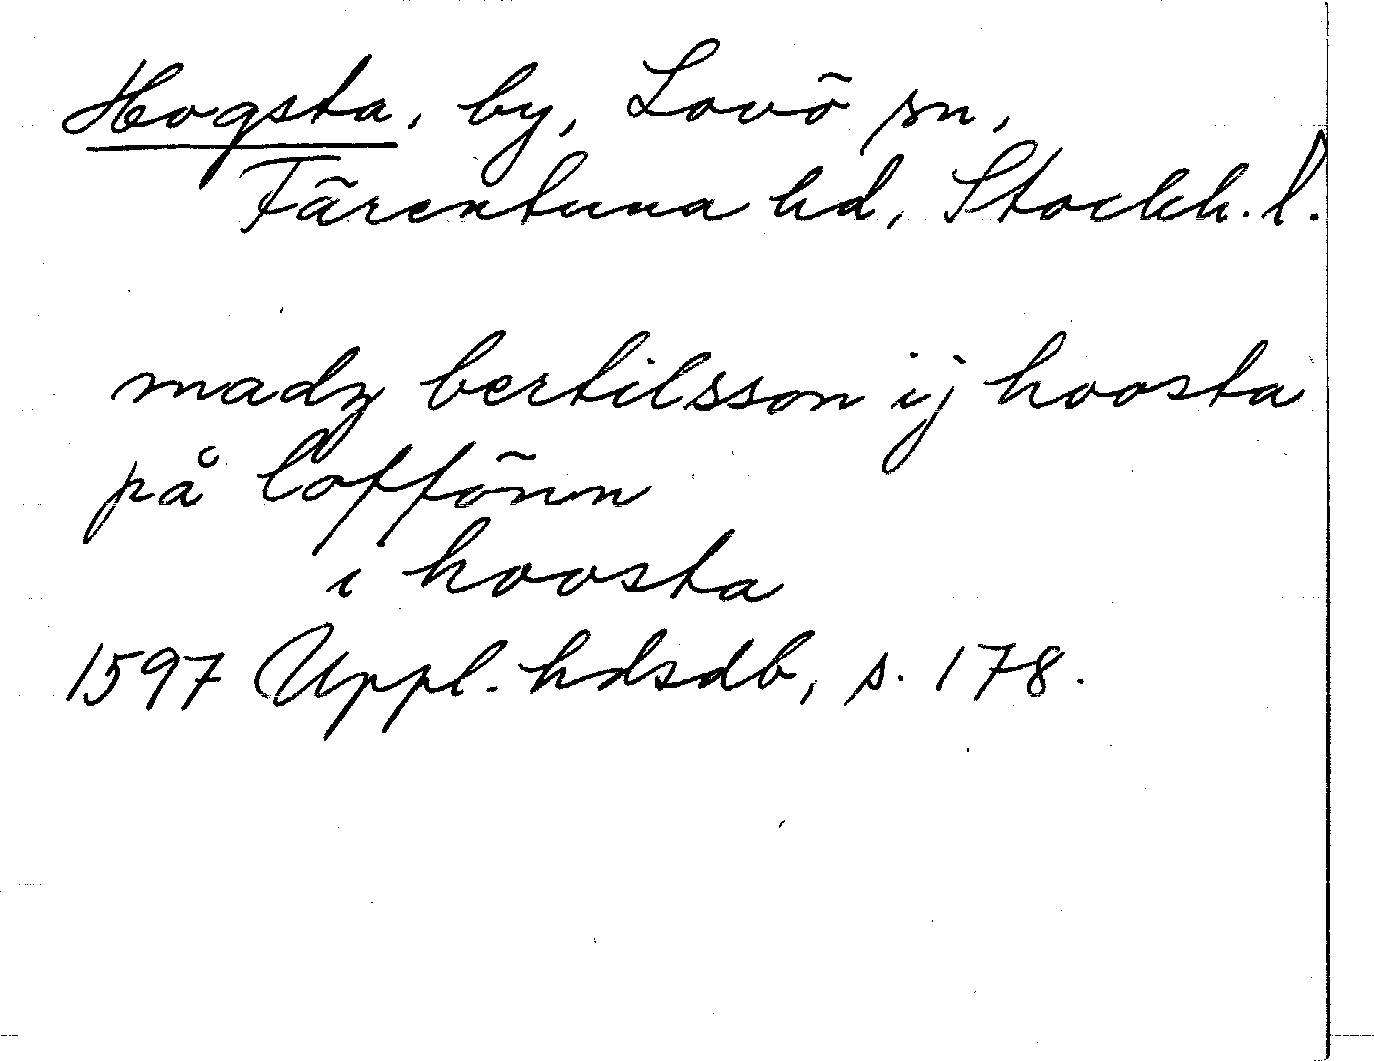 Hogsta, by, Lovö sn,
Färentuna hd, Stockh. l.
madz bertilsson ij hoosta
på loffönn
i hoosta
1597 Uppl. hdsdb, s. 178.